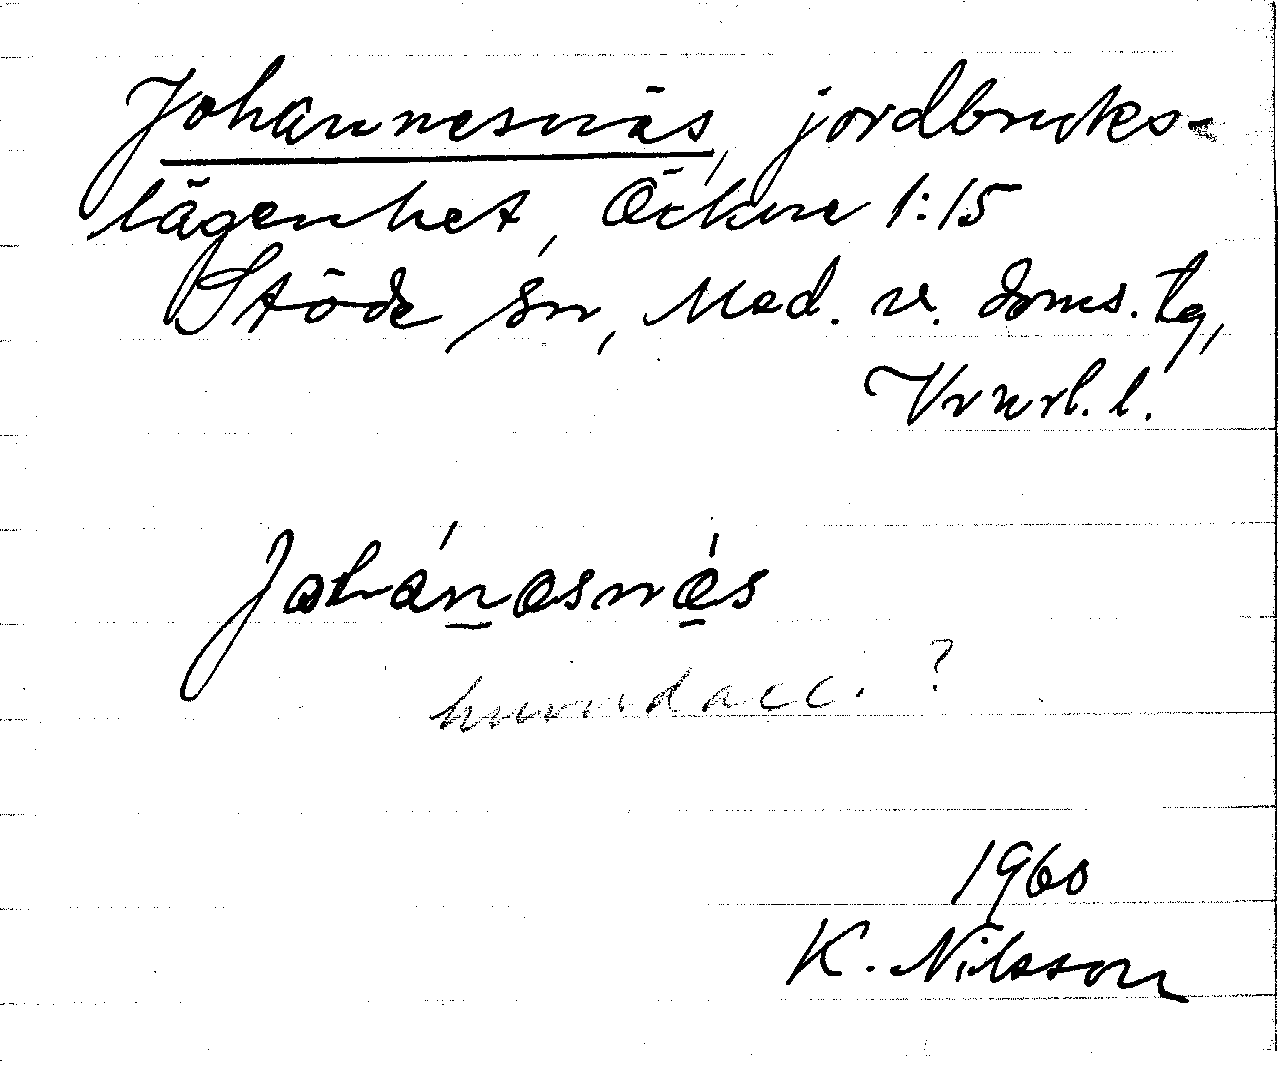 Johannesnäs, jordbruks-
lägenhet, Öckne 1:15
Stöde sn, Med. v. doms. tg,
Vrnrl. l.
Johánasnäs
huvudacc. ?
1960
K. Nilsson